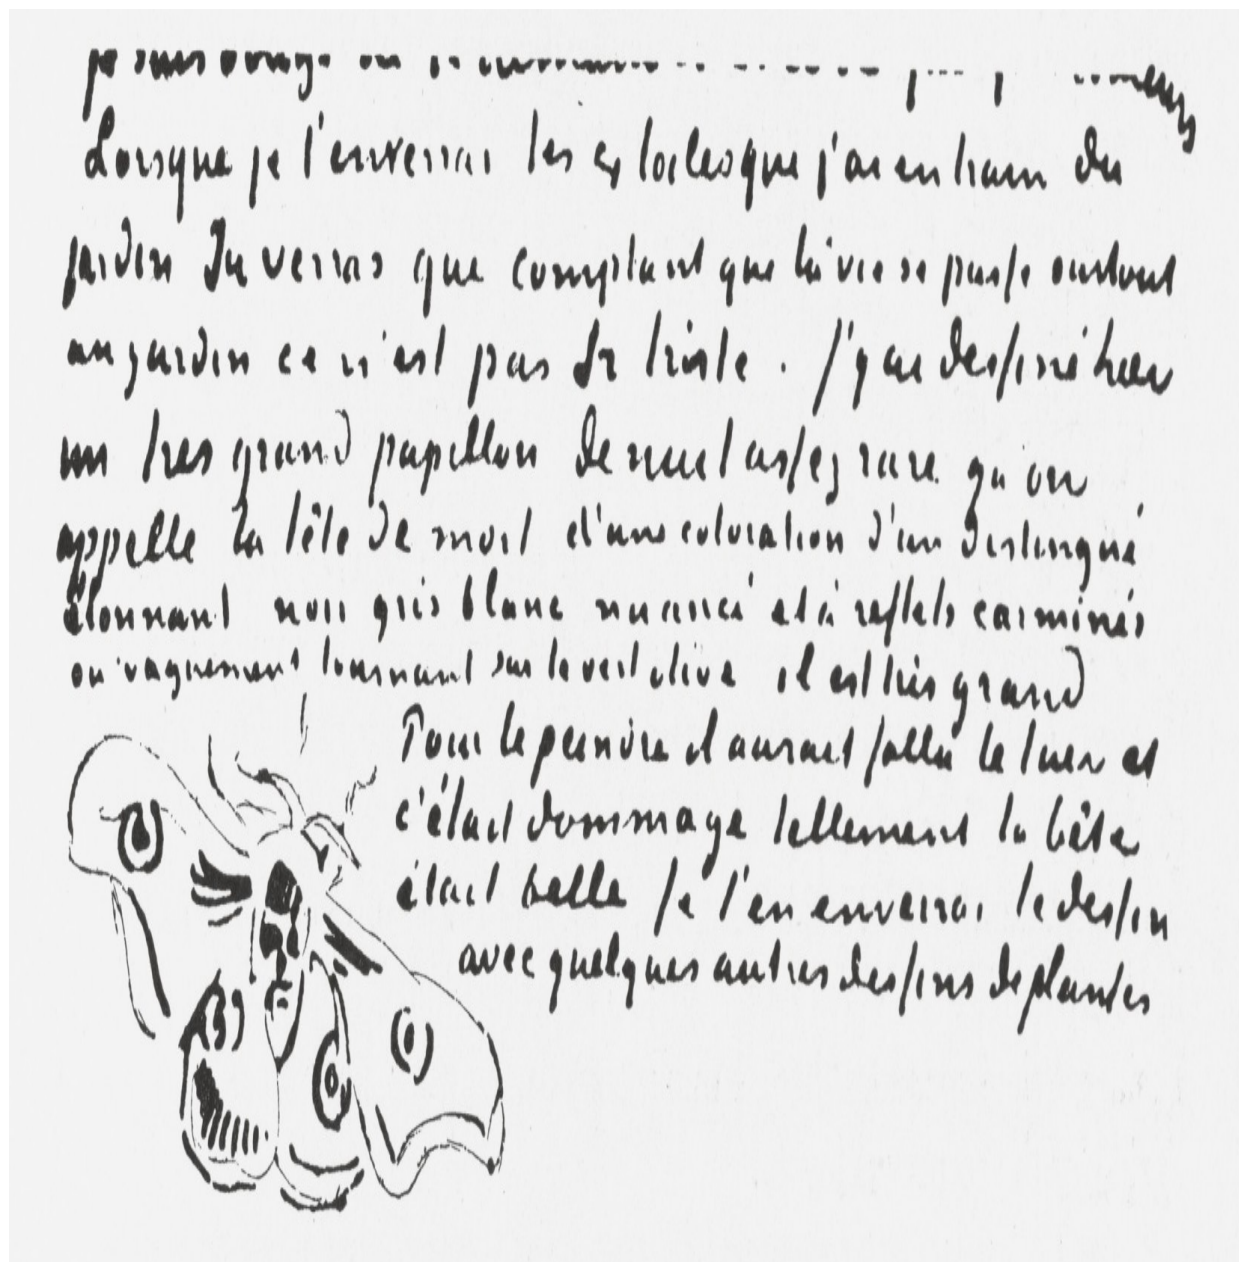 Lorsque je t'enverrai les 4 toiles que j'ai en train du
jardin Tu verras que comptant que la vie se passe surtout
au jardin ce n'est pas si triste. J'y ai dessiné hier
un tres grand papillon de nuit assez rare qu'on
appelle la tête de mort d'une coloration d'un distingué
étonnant noir gris blanc nuancé et à reflets carminés
ou vaguement tournant sur le vert olive il est très grand
Pour le peindre il aurait fallu le tuer et
c'était dommage tellement la bête
était belle Je t'en enverrai le dessin
avec quelques autres dessins de plantes